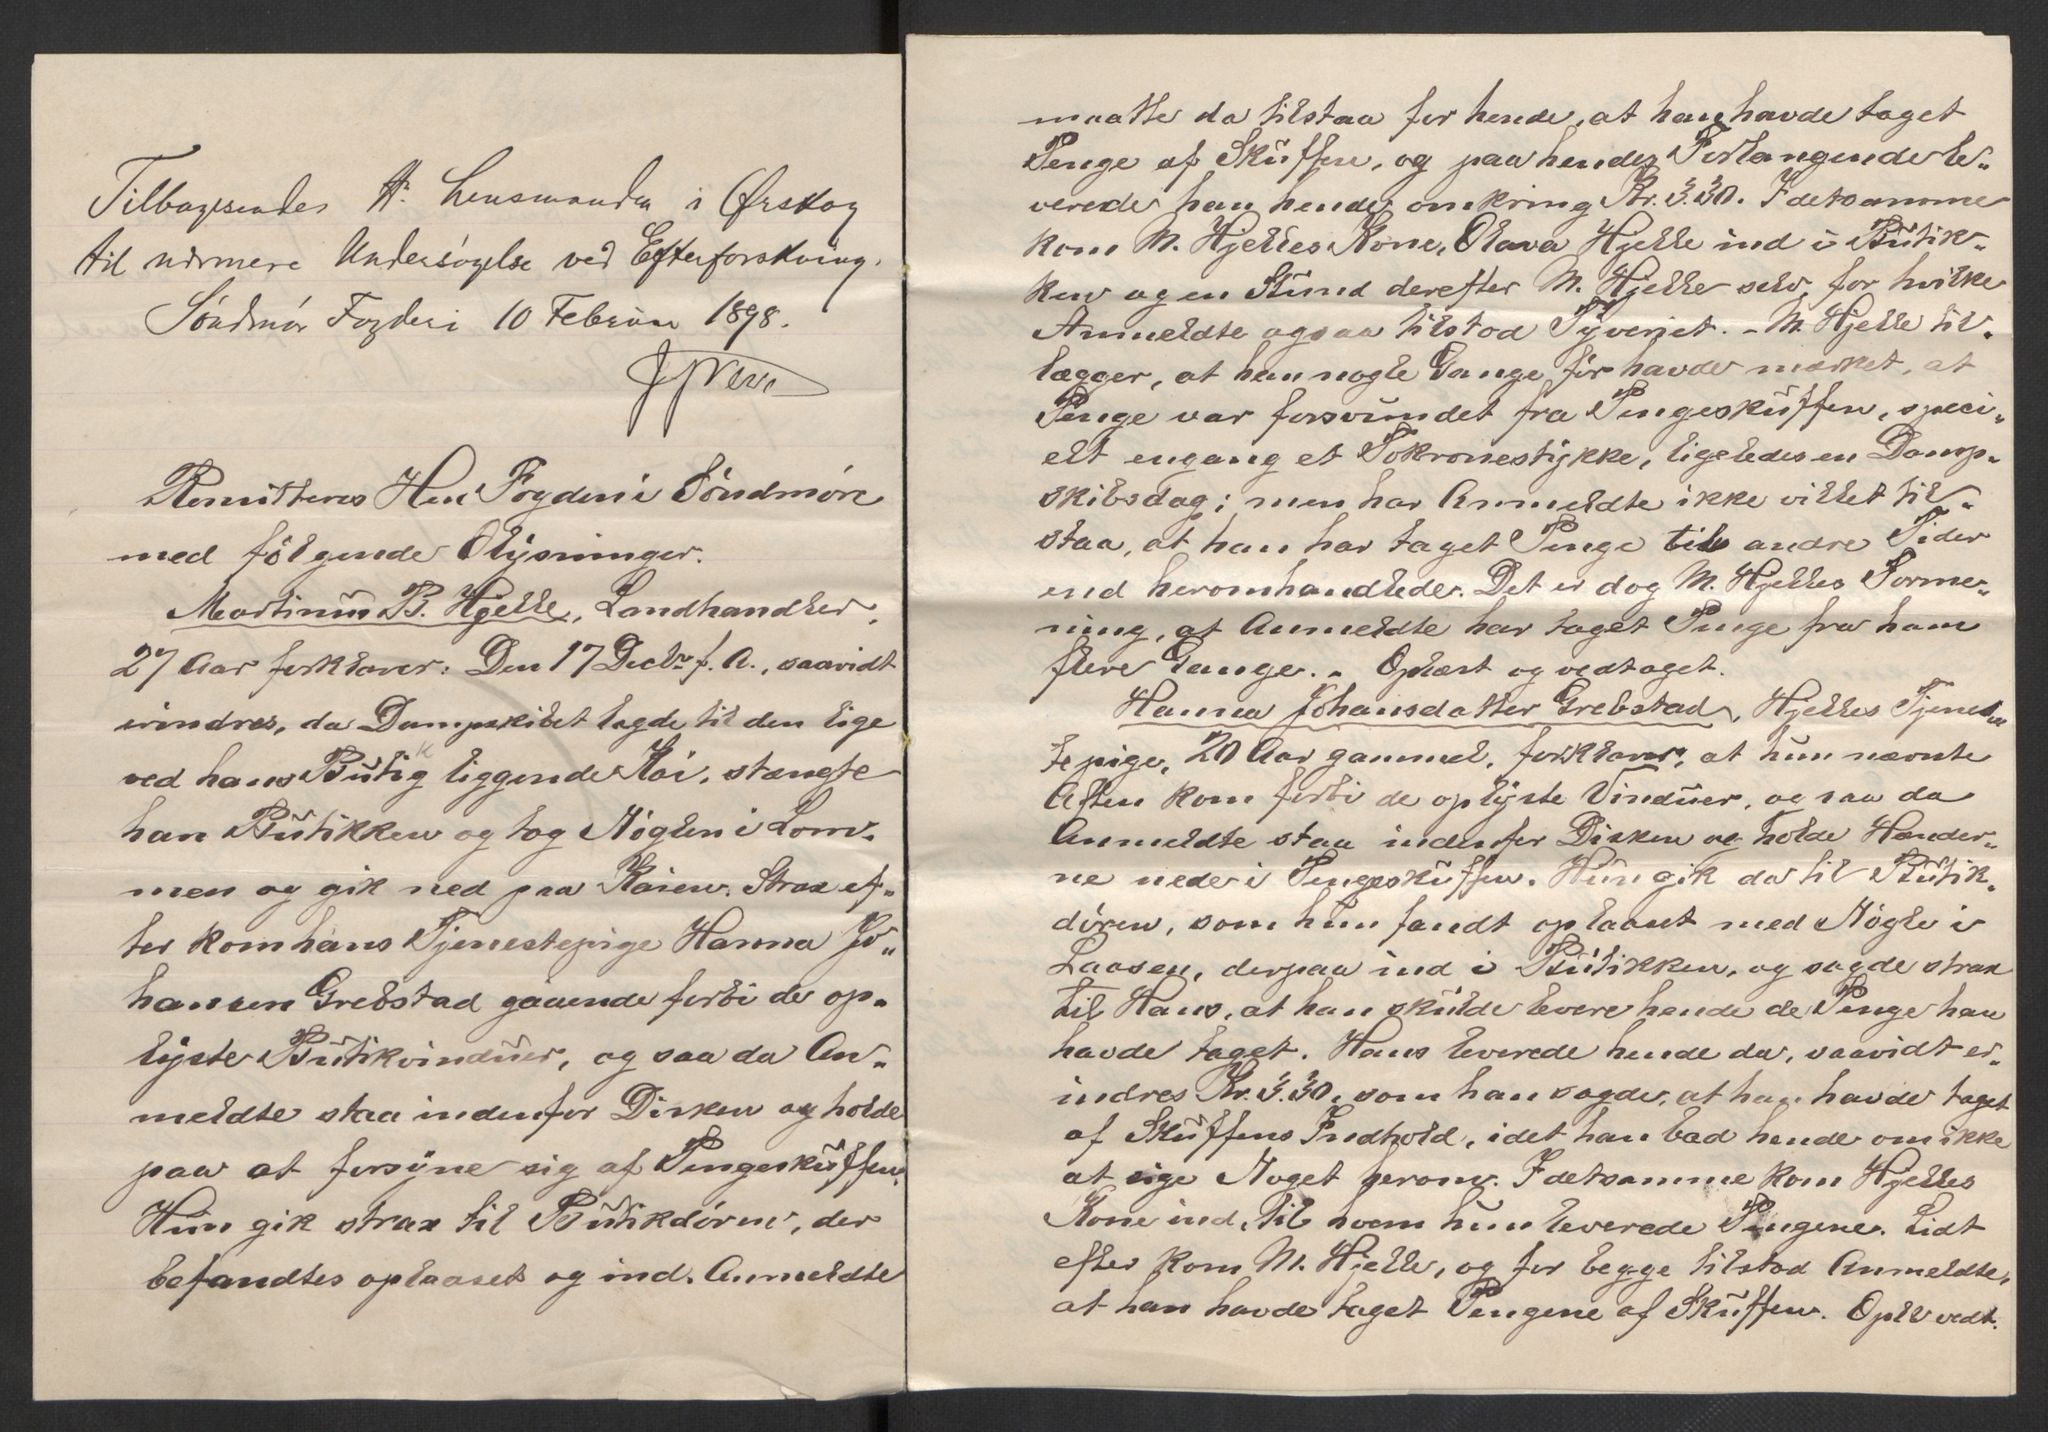 Tilbagesendes Hr. Lensmanden i Ørskog
til nærmere Undersøgelse ved Efterforskning.
Söndmör Fogderi 10 Februar 1898.
Remitteres Herr Fogden i Söndmöre
med fölgende Oplysninger.
Martinus B. Hjelle, Landhandler,
27 Aar forklarer: Den 17 Decbr f. A., saavidt
erindres, da Dampskibet lagde til den lige
ved hans Butik liggende Kai, stængte
han Butikken og tog Nöglen i Lom„
men og gik ned paa Kaien. Strax ef„
ter kom hans Tjenestepige Hanna Jo„
hansen Grebstad gaaende forbi de op„
lyste Butikvinduer, og saa da An„
meldte staa indenfor Disken og holde
paa at forsyne sig af Pengeskuffen.
Hun gik strax til Butikdören, der
befandtes oplaaset og ind. Anmeldte
maatte da tilstaa for hende, at han havde taget
Penge af Skuffen, og paa hendes Forlangende le„
verede han hende omkring Kr. 3.30. I detsamme
kom M. Hjelles Kone, Olava Hjelle ind i Butik„
ken og en Stund derefter M. Hjelle selv, for hvilke
Anmeldte ogsaa tilstod Tyveriet. – M. Hjelle til„
lægger, at han nogle Gange för havde mærket, at
Penge var forsvundet fra Pengeskuffen, speci„
elt engang et Tokronestykke, ligeledes en Damp„
skibsdag; men har Anmeldte ikke villet til„
staa, at han har taget Penge til andre Tider
end heromhandlede. Det er dog M. Hjelles Forme„
ning, at Anmeldte har taget Penge fra ham
flere Gange. – Oplæst og vedtaget.
Hanna Johansdatter Grebstad, Hjelles Tjenes„
tepige, 20 Aar gammel, forklarer, at hun nævnte
Aften kom forbi de oplyste Vinduer, og saa da
Anmeldte staa indenfor Disken og holde Hænder„
ne nede i Pengeskuffen. Hun gik da til Butik„
dören, som hun fandt oplaaset med Nögle i
Laasen, derpaa ind i Butikken, og sagde strax
til Hans, at han skulde levere hende de Penge han
havde taget. Hans leverede hende da, saavidt er„
indres Kr. 3.30, som han sagde, at han havde taget
af Skuffens Indhold, idet han bad hende om ikke
at sige Noget herom. I detsamme kom Hjelles
Kone ind, til hvem hun leverede Pengene. Lidt
efter kom M. Hjelle, og for begge tilstod Anmeldte,
at han havde taget Pengene af Skuffen. Opl. vedt.